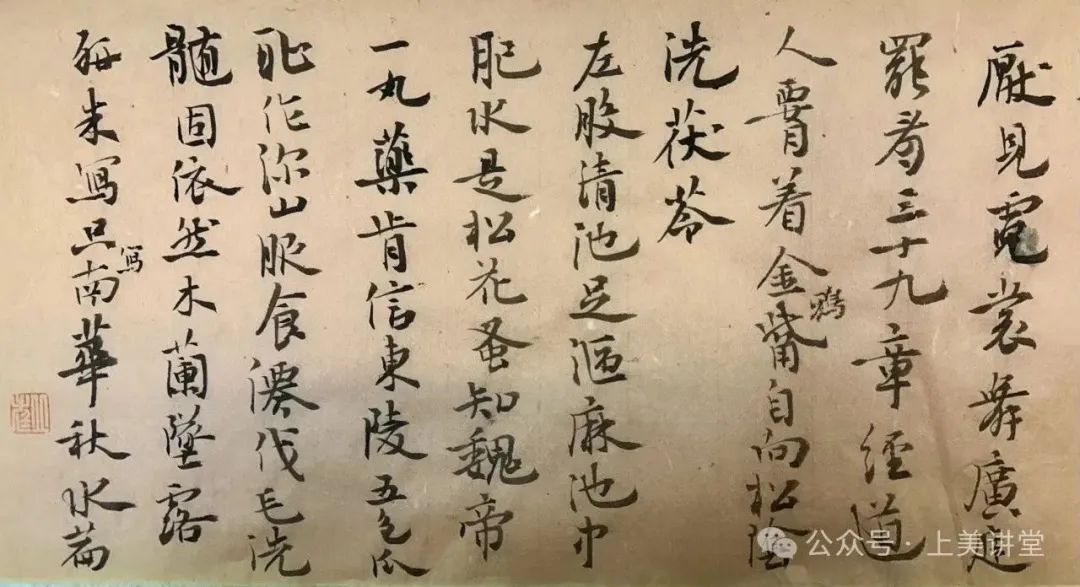 厭見霓裳舞廣庭
罷看三十九章經道
人着金鴉觜自向松陰
洗茯苓
左股清池足漚麻池中
肥水是松花蚤知魏帝
一丸藥肯信東陵五色瓜
耻作深山服食僊伐毛洗
髓固依然木蘭墜露
研朱寫只寫南華秋水篇
公众号·上美讲堂